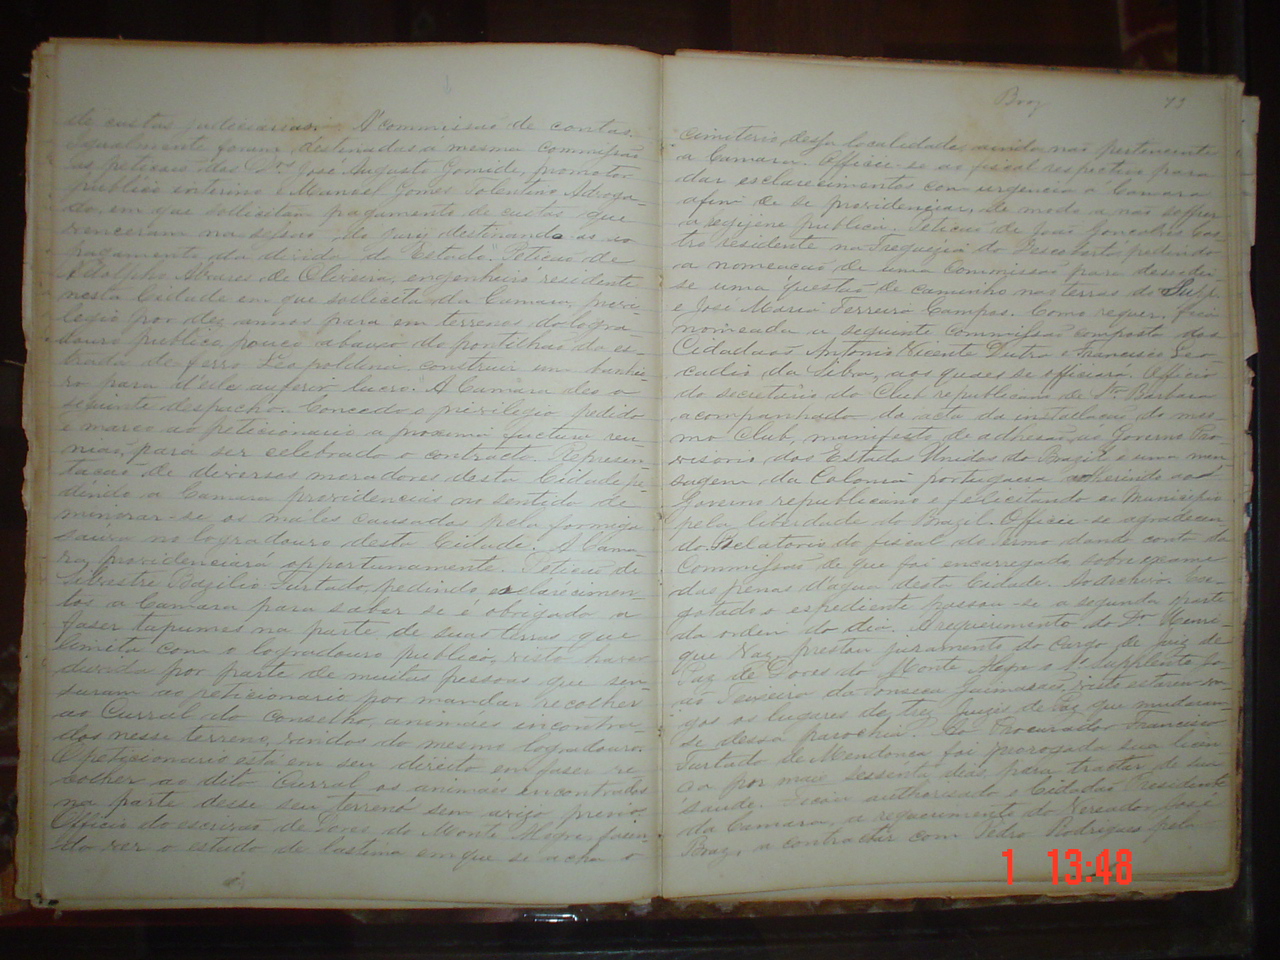 de custas judiciarias. A commissão de contas.
Igualmente foram destinadas a mesma commissão
as petições dos Dr. José Augusto Gomide, promotor
publico interino e Manoel Gomes Tolentino, Advoga-
do, em que sollicitam pagamento de custas que
venceram na sessão do jury destinando-as ao
pagamento da divida do Estado. Petição de
Adolpho Alvares de Oliveira, engenheiro residente
nesta Cidade em que sollicita da Camara, privi-
legio por dez annos para em terrenos do logra-
douro publico, pouco abaixo do pontilhão da es-
trada de ferro Leopoldina, construir um banhei-
ro para d'elle auferir lucro. A Camara deo o
seguinte despacho. Concedo o privilegio pedido
e marco ao peticionario a proxima fuctura reu-
nião, para ser celebrado o contracto. Represen-
tação de diversos moradores desta Cidade pe-
dindo a Camara providencias no sentido de
minorar-se os males causados pela formiga
sauva no logradouro desta Cidade. A Cama-
ra, providenciará opportunamente. Petição de
Silvestre Furtado, pedindo esclarecimen-
tos a Camara para saber se é obrigado a
faser tapumes na parte de suas terras que
limita com o logradouro publico, visto haver
duvida por parte de muitas pessoas que cen-
suram ao peticionario por mandar recolher
ao Curral do Conselho, animaes incontra-
dos nesse terreno, vindos do mesmo logradouro.
O peticionario está em seu direito em faser re-
colher ao dito Curral os animaes encontrados
na parte desse seu terreno sem avizo previo.
Officio do escrivão de Dores do Monte Alegre, fasen-
do ver o estado de lastima em que se acha o
Braz 73
cimeterio, dessa localidade, ainda não pertencente
a Camara. Officie-se ao fiscal respectivo para
dar esclarecimentos con urgencia a Camara
afim de se providenciar, de modo a não soffrer
a hygiene publica. Petição de João Gonçalves Cas-
tro residente na Freguezia do Descoberto, pedindo
a nomeação de uma Commissão para descedir
se uma questão de caminho nas terras do Suppe
e José Maria Ferreira Campos. Como requer, fica
nomeada a seguinte Commissão composta dos
Cidadãos Antonio Vicente Dutra e Francisco Leo-
cadio da Silva, aos quaes se officiará. Officio
do secretario do Club republicano de Sta Barbara
acompanhado da acta da installação do mes-
mo Club, manifesto de adhesão, ao Governo Pro-
visorio dos Estados Unidos do Brazil e uma men-
sagem da Colonia portugueza adherindo ao
Governo republicano e felicitando ao Municipio
pela liberdade do Brazil. Officie-se agradecen-
do. Relatorio do fiscal do termo dando conta da
Commissão de que foi encarregado sobre exame
das penas d'agua desta Cidade. Ao archivo. Es-
gotado o espediente passou-se a segunda parte
da ordem do dia. A requerimento do Dr Henri-
que Vaz, prestou juramento do cargo de juiz de
Paz de Dores do Monte Alegre o 1º supplente Jo-
ão Teixeira da Fonseca Guimarães, visto estarem va-
gos os lugares de trez Juizes de Paz que mudaram-
se dessa parochia. Ao Procurador Francisco
Furtado de Mendonça foi prorogada sua licen-
ça por mais sessenta dias, para tractar de sua
saude. Ficou authorisado o Cidadão Presidente
da Camara, a requerimento do Vereador José
Braz, a contractar com Pedro Rodrigues pela
1 13:48